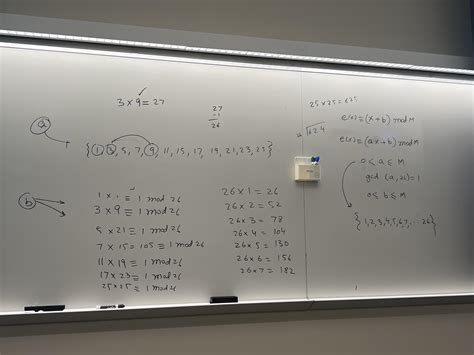 3 × 9 = 27
27
-1
26
a
{1, 3, 5, 7, 9, 11, 15, 17, 19, 21, 23, 25}
b
1 × 1 ≡ 1 mod 26
3 × 9 ≡ 1 mod 26
5 × 21 ≡ 1 mod 26
7 × 15 = 105 ≡ 1 mod 26
11 × 19 ≡ 1 mod 26
17 × 23 ≡ 1 mod 26
25 × 25 ≡ 1 mod 26
26 × 1 = 26
26 × 2 = 52
26 × 3 = 78
26 × 4 = 104
26 × 5 = 130
26 × 6 = 156
26 × 7 = 182
25 × 25 = 625
26 √624
e(x) = (x + b) mod M
e(x) = (ax + b) mod M
0 < a ≤ M
gcd (a, 26) = 1
0 ≤ b ≤ M
{1, 2, 3, 4, 5, 6, 7, ... 26}